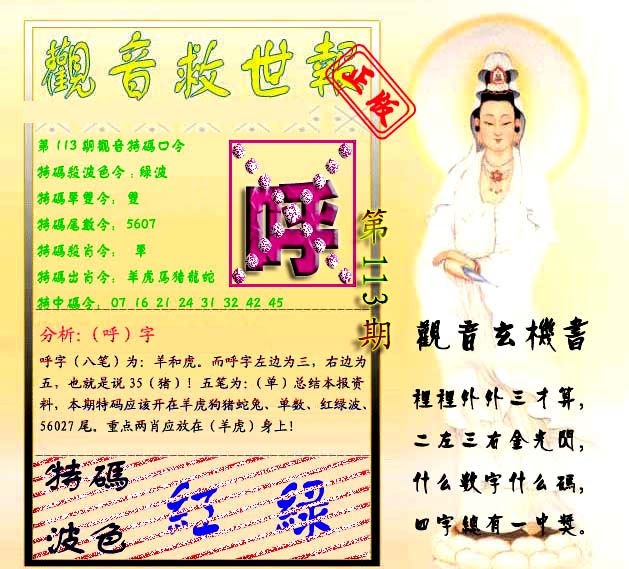 觀音救世報
正版
第113期觀音特碼口令
特碼殺波色令:綠波
特碼單雙令: 雙
特碼尾數令: 5607
特碼殺肖令: 單
特碼出肖令: 羊虎馬猪龍蛇
特中碼令: 07 16 21 24 31 32 42 45
呼
第113期
分析:(呼)字
呼字（八笔）为：羊和虎。而呼字左边为三，右边为
五，也就是说35（猪）！五笔为：（单）总结本报资
料，本期特码应该开在羊虎狗猪蛇兔、单数、红绿波、
56027尾。重点两肖应放在（羊虎）身上！
特碼
波色
紅 綠
觀音玄機書
裡裡外外三才算，
二左三右金光閃，
什么数字什么碼，
四字總有一中獎。